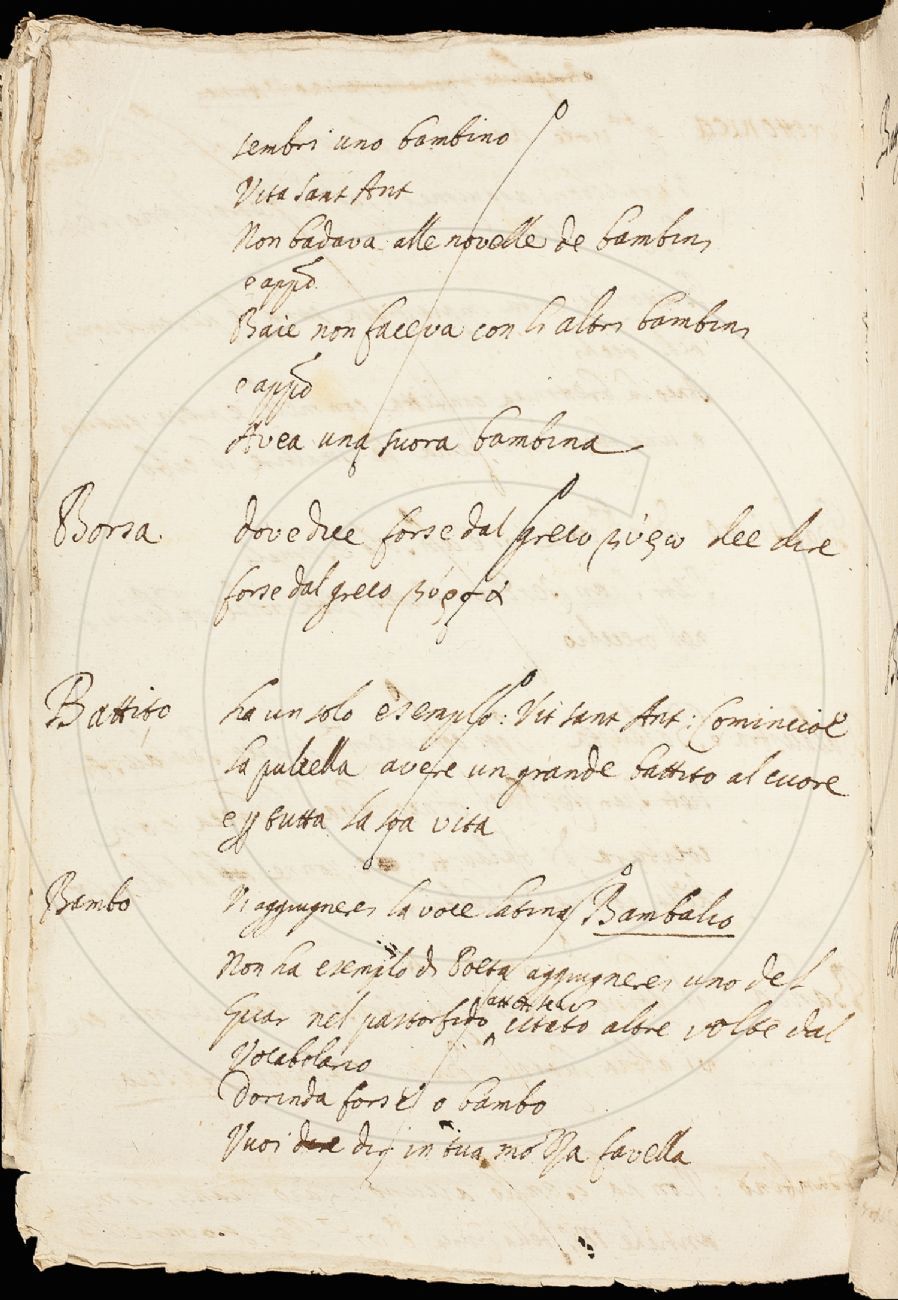 sembri uno bambino
Vita Sant Ant
Non badava alle novelle de bambini
e appo
Baie non faceva con li altri bambini
e appo
Avea una suora bambina
Borsa. dove dice forse dal greco βύρσω dee dire
forse dal greco βύρσα
Battito ha un solo esemplo: Vit Sant Ant: Cominciò
la pulcella avere un grande battito al cuore
e p tutta la sua vita
Bambo Vi aggiugnerei la voce latina Bambalio
Non ha esemplo di Poeta aggiugnerei uno del
Guar nel pastorfido att citato altre volte dal
Vocabolario
Dorinda forsel o bambo
Vuoi dire dir in tua mozza favella